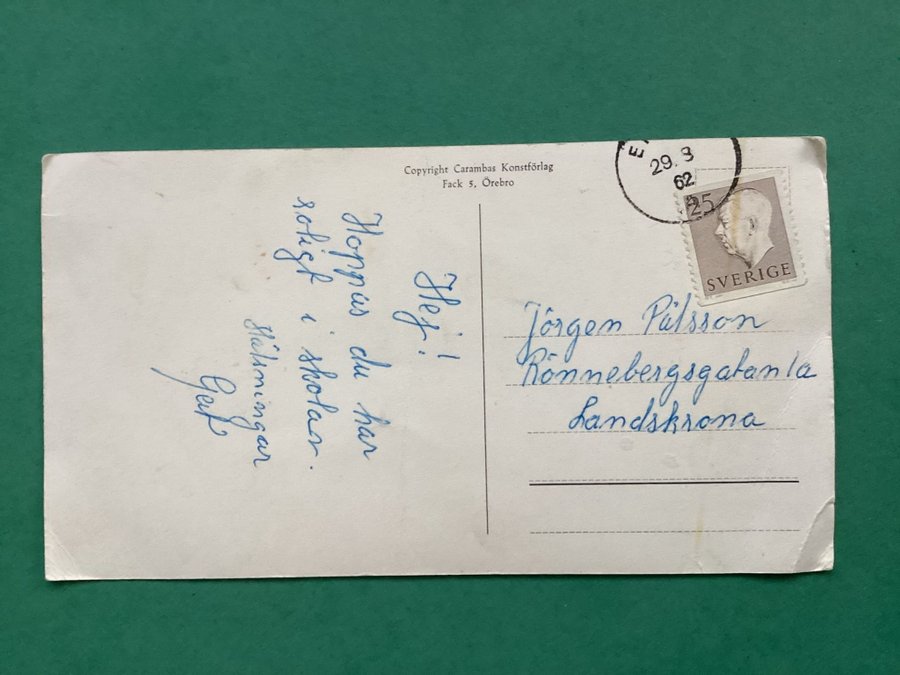 Copyright Carambas Konstförlag
Fack 5, Örebro
29. 3
62
25
SVERIGE
Hej!
Hoppas du har
roligt i skolan.
Hälsningar
Jörgen Pålsson
Rönnebergsgatan 1a
Landskrona